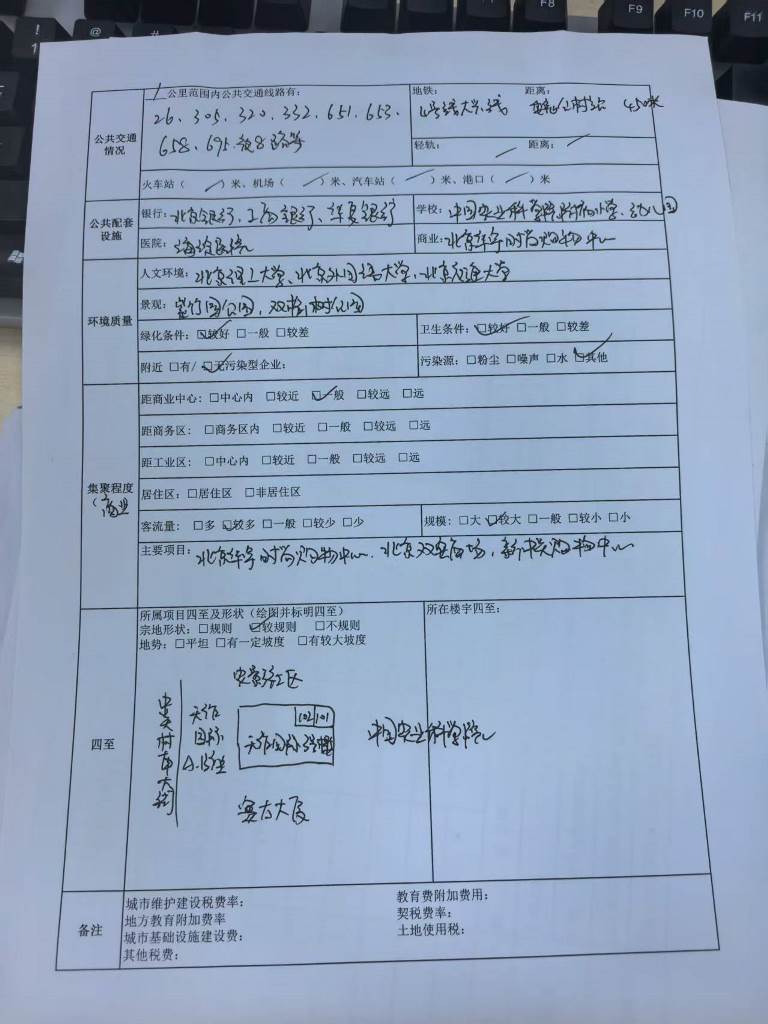 公共交通情况
1公里范围内公共交通线路有:
26、305、320、332、651、653、
658、695、特8路等
地铁: 距离:
4号线大兴线 魏公村站 450米
轻轨: 距离:
火车站( )米、机场( )米、汽车站( )米、港口( )米
公共配套设施
银行:北京银行、工商银行、华夏银行
学校:中国农业科学院附属小学、幼儿园
医院:海淀医院
商业:北京华宇时尚购物中心
环境质量
人文环境:北京理工大学、北京外国语大学、北京交通大学
景观:紫竹院公园、双榆树公园
绿化条件:□较好 □一般 □较差
卫生条件:□较好 □一般 □较差
附近 □有/ □无污染型企业:
污染源:□粉尘 □噪声 □水 □其他
集聚程度
(商业
距商业中心:□中心内 □较近 □一般 □较远 □远
距商务区:□商务区内 □较近 □一般 □较远 □远
距工业区:□中心内 □较近 □一般 □较远 □远
居住区:□居住区 □非居住区
客流量:□多 □较多 □一般 □较少 □少
规模:□大 □较大 □一般 □较小 □小
主要项目:北京华宇时尚购物中心、北京双安商场、新中关购物中心
四至
所属项目四至及形状(绘图并标明四至)
宗地形状:□规则 □较规则 □不规则
地势:□平坦 □有一定坡度 □有较大坡度
所在楼宇四至:
社区
中关村南大街
天作国际
A座
102 101
天作国际
中国农业科学院
大厦
备注
城市维护建设税费率:
教育费附加费用:
地方教育附加费率
契税费率:
城市基础设施建设费:
土地使用税:
其他税费:
! 1
@
#
F8
F9
F10
F11